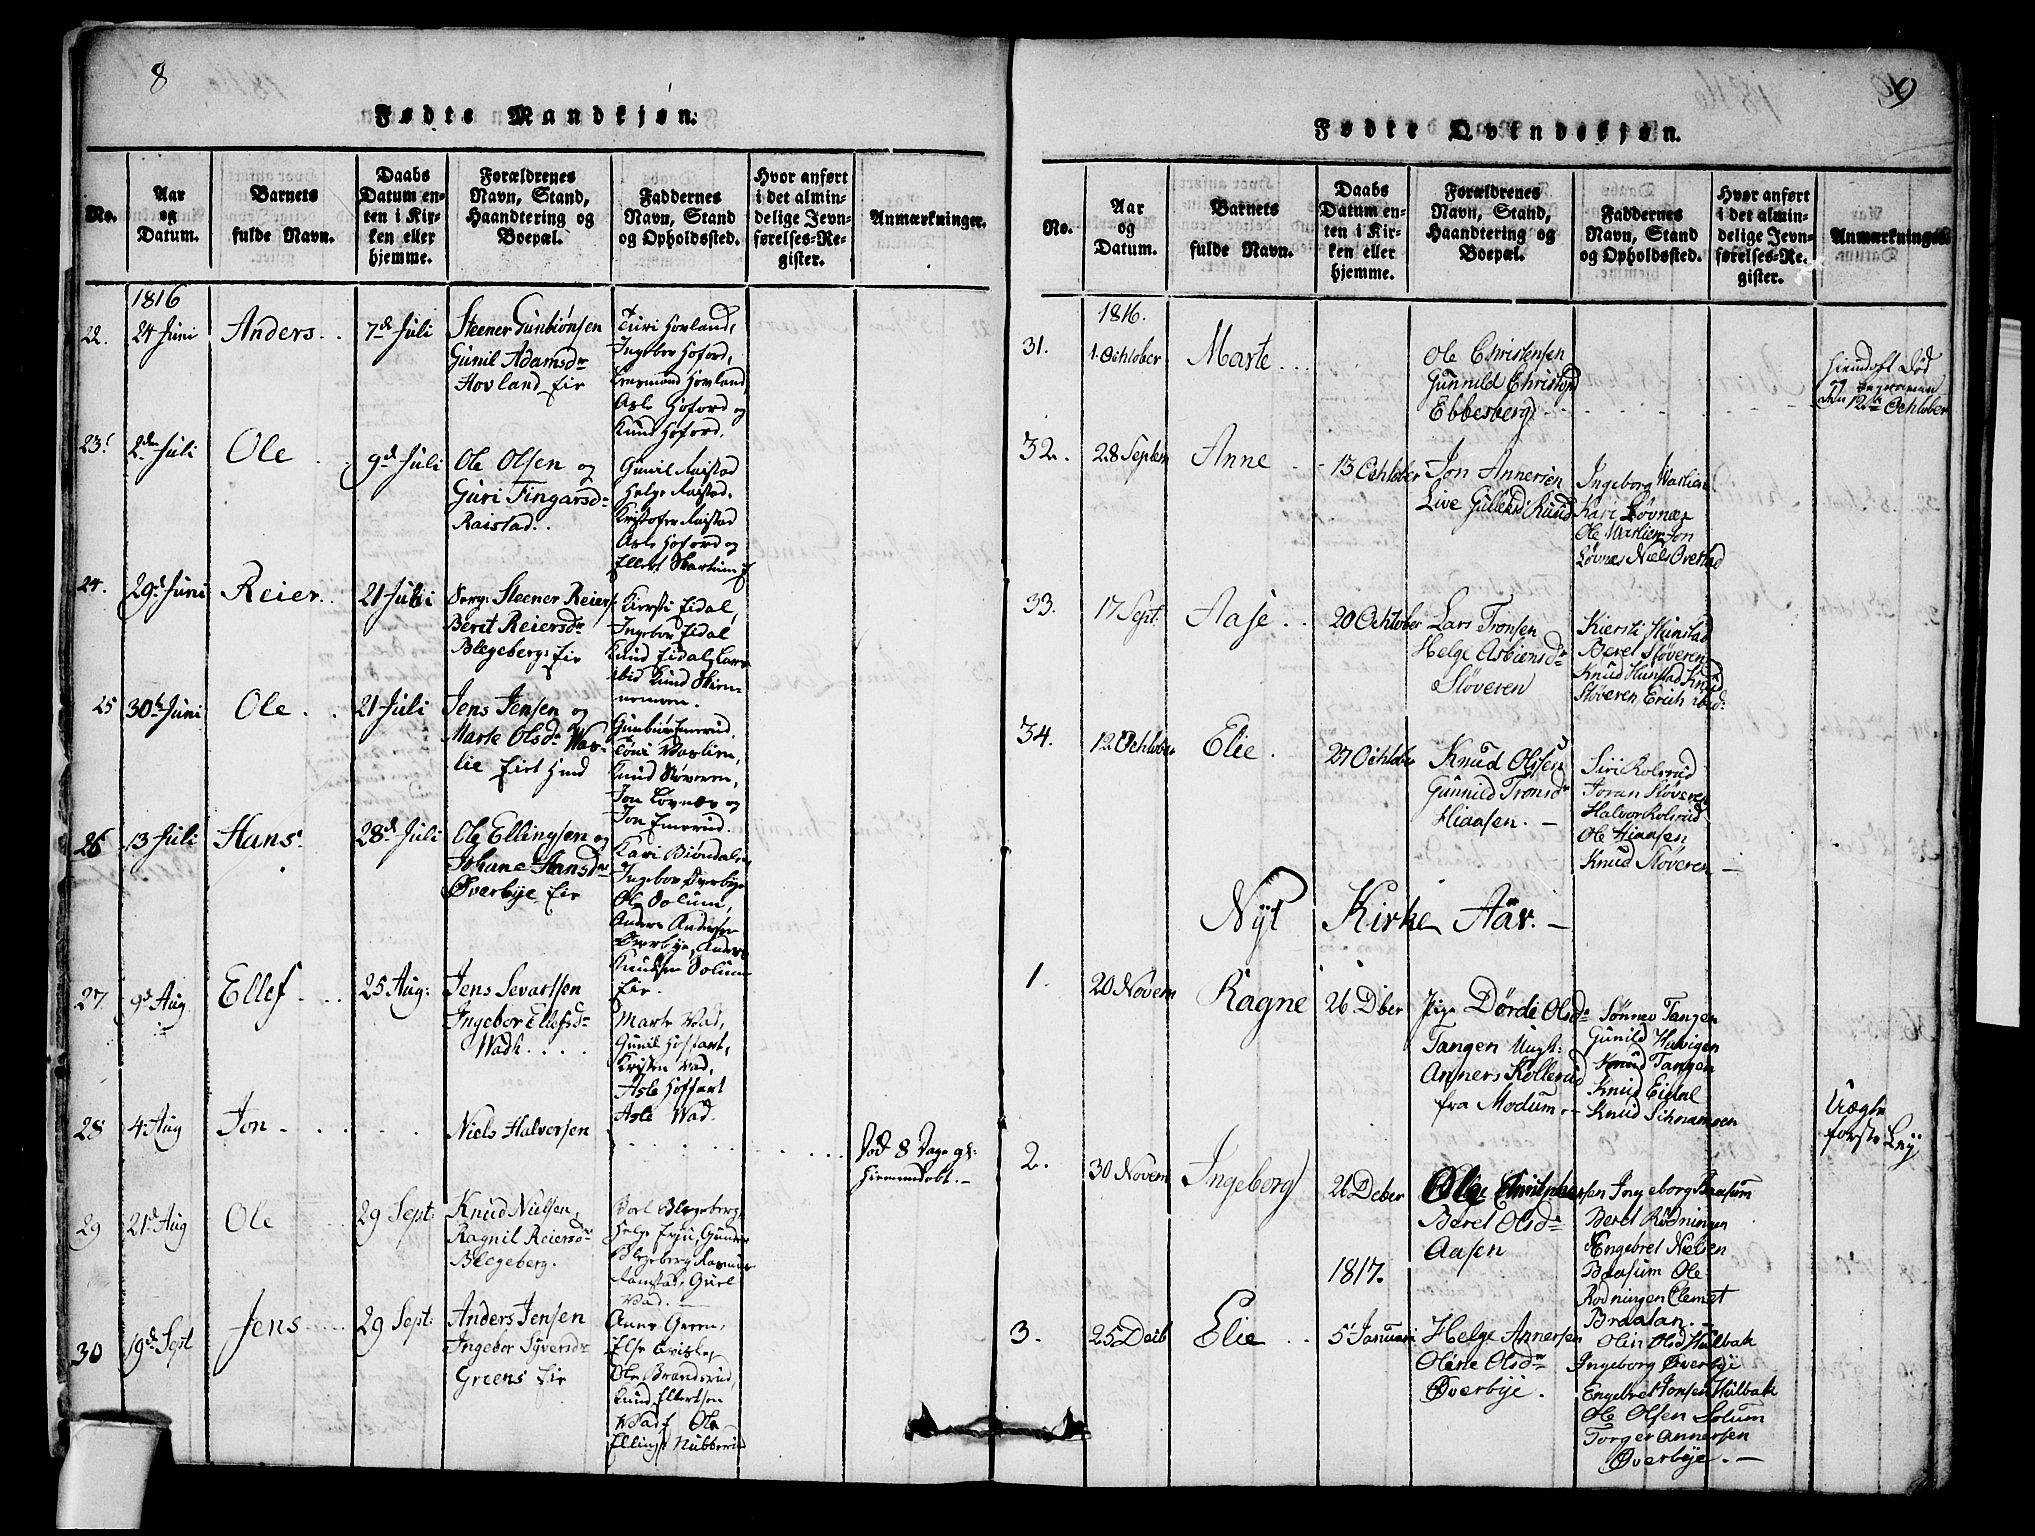 8
Fødte Mandkjøn.
No.
Aar
og
Datum.
Barnets
fulde Navn.
Daabs
Datum en-
ten i Kir-
ken eller
hjemme.
Forældrenes
Navn, Stand,
Haandtering og
Boepæl.
Faddernes
Navn, Stand
og Opholdssted.
Hvor anført
i det almin-
delige Jevn-
førelses-Re-
gister.
Anmærkninger.
1816
22. 24 Juni Anders. 7de Juli
Steener Gunbiønsen
Gunil Adamsdr
Hovland Eir
Turi Hovland,
Ingebor Hoford,
Hovland
Asle Hoford og
Knud Hoford.
23. 2den Juli Ole 9de Juli
Ole Olsen og
Guri Fingarsdr
Raistad.
Gunil Raistad
Helge Raistad.
Kristofer Raistad
Asle Hoford og
Ellert
24. 29de Juni Reier. 21 Juli
Steener Reiers
Berit Reiersdr
Blegeberg: Eir
Kirsti Eidal,
Ingebor Eidal
Knud Eidal, Lars
ibid Knud
25 30te Juni Ole. 21 Juli
Jens Jensen og
Marte Olsdr Was-
lie
Gunbiør Enerud.
Toni Waslien,
Knud Støveren,
Jon Løvnæs og
Jon Enerud.
26 13 Juli Hans. 28de Juli
Ole Ellingsen og
Johane Hansdr
Øverbye Eir
Kari Biøndal,
Ingebor Øverbye
Ole Solum,
Anders Andersen
Øverbye, Anders
Knudsen Solum
Eir.
27 9de Aug Ellef 25 Aug:
Jens Sevartsen
Ingebor Ellefsdr
Wadh
Marte Wad,
Gunil Hoffart,
Kristen Wad,
Asle Hoffart
Asle Wad.
28 4 Aug Jon
Niels Halvorsen
Død 8 Dage gl:
hiemmedøbt.
29 21de Aug Ole 29 Sept:
Knud Nielsen,
Ragnil Reiersdr
Blegeberg.
Blegeberg,
Helge Gunner
Blegeberg Rasmus
Ramstad,
Wad.
30 19de Sept Jens 29 Sept:
Anders Jensen
Ingebor Syversdr
Greens Eir
Anne Green,
Else
Ole Brandsrud,
Knud Ellertsen
Wad Ole
Ellings Nubberud
9
Fødte Qvindekjøn.
No.
Aar
og
Datum.
Barnets
fulde Navn.
Daabs
Datum en-
ten i Kir-
ken eller
hjemme.
Forældrenes
Navn, Stand,
Haandtering og
Boepæl.
Faddernes
Navn, Stand
og Opholdssted.
Hvor anført
i det almin-
delige Jevn-
førelses-Re-
gister.
Anmærkninger.
1816.
31. 1. Ochtober Marte
Ole Christensen
Gunnild Christofd
Ebbesberg
Hiemdøft Død
den 12te Ochtober
32. 28 Septem Anne 13 Ochtober
Jon Annersen
Live Gulleksd: Ruud
Ingeborg Waslien
Kari Løvnæs
Ole Waslien Jon
Løvnæs Niels Ovestad
33. 17 Sept. Aase 20 Ochtober
Lars Tronsen
Helge Asbiønsdr
Støveren
Kiersti Hunstad
Beret Støveren
Knud Hunstad Knud
Støveren, Erich ibid:
34. 12. Ochtober Elie 27 Ochtober
Knud Olssen
Gunnild Tronsdr
Hiaasen.
Siri Rolsrud
Joran Støveren
Halvor Rolsrud
Ole Hiaasen,
Knud Støveren
Nyt Kirke Aar.
1. 20 Novem Ragne 26 Dber
Pige Dørdi Olsdr
Tangen Ungk:
Anners Kollerud
fra Modum
Sønnev Tangen
Gunild Havigen
Knud Tangen
Knud Eidal
Knud Schnamoen
Uægte
første Leij
2. 30 Novem Ingeborg 26 Dcber
Ole Christophersen
Beret Olsdr
Aasen
Ingeborg Braasum
Beret Rodningen
Engebret Nielsen
Braasum Ole
Rodningen Clemet
Braatan.
1817.
3. 25 Decb Elie 5 Januari
Helge Annersen
Oline Olsdr
Øverbye.
Olin Olsd Hulbak
Ingeborg Øverbye
Engebret Jonsen Hulbak
Ole Olsen Solum
Torger Annersen
Øverbye.